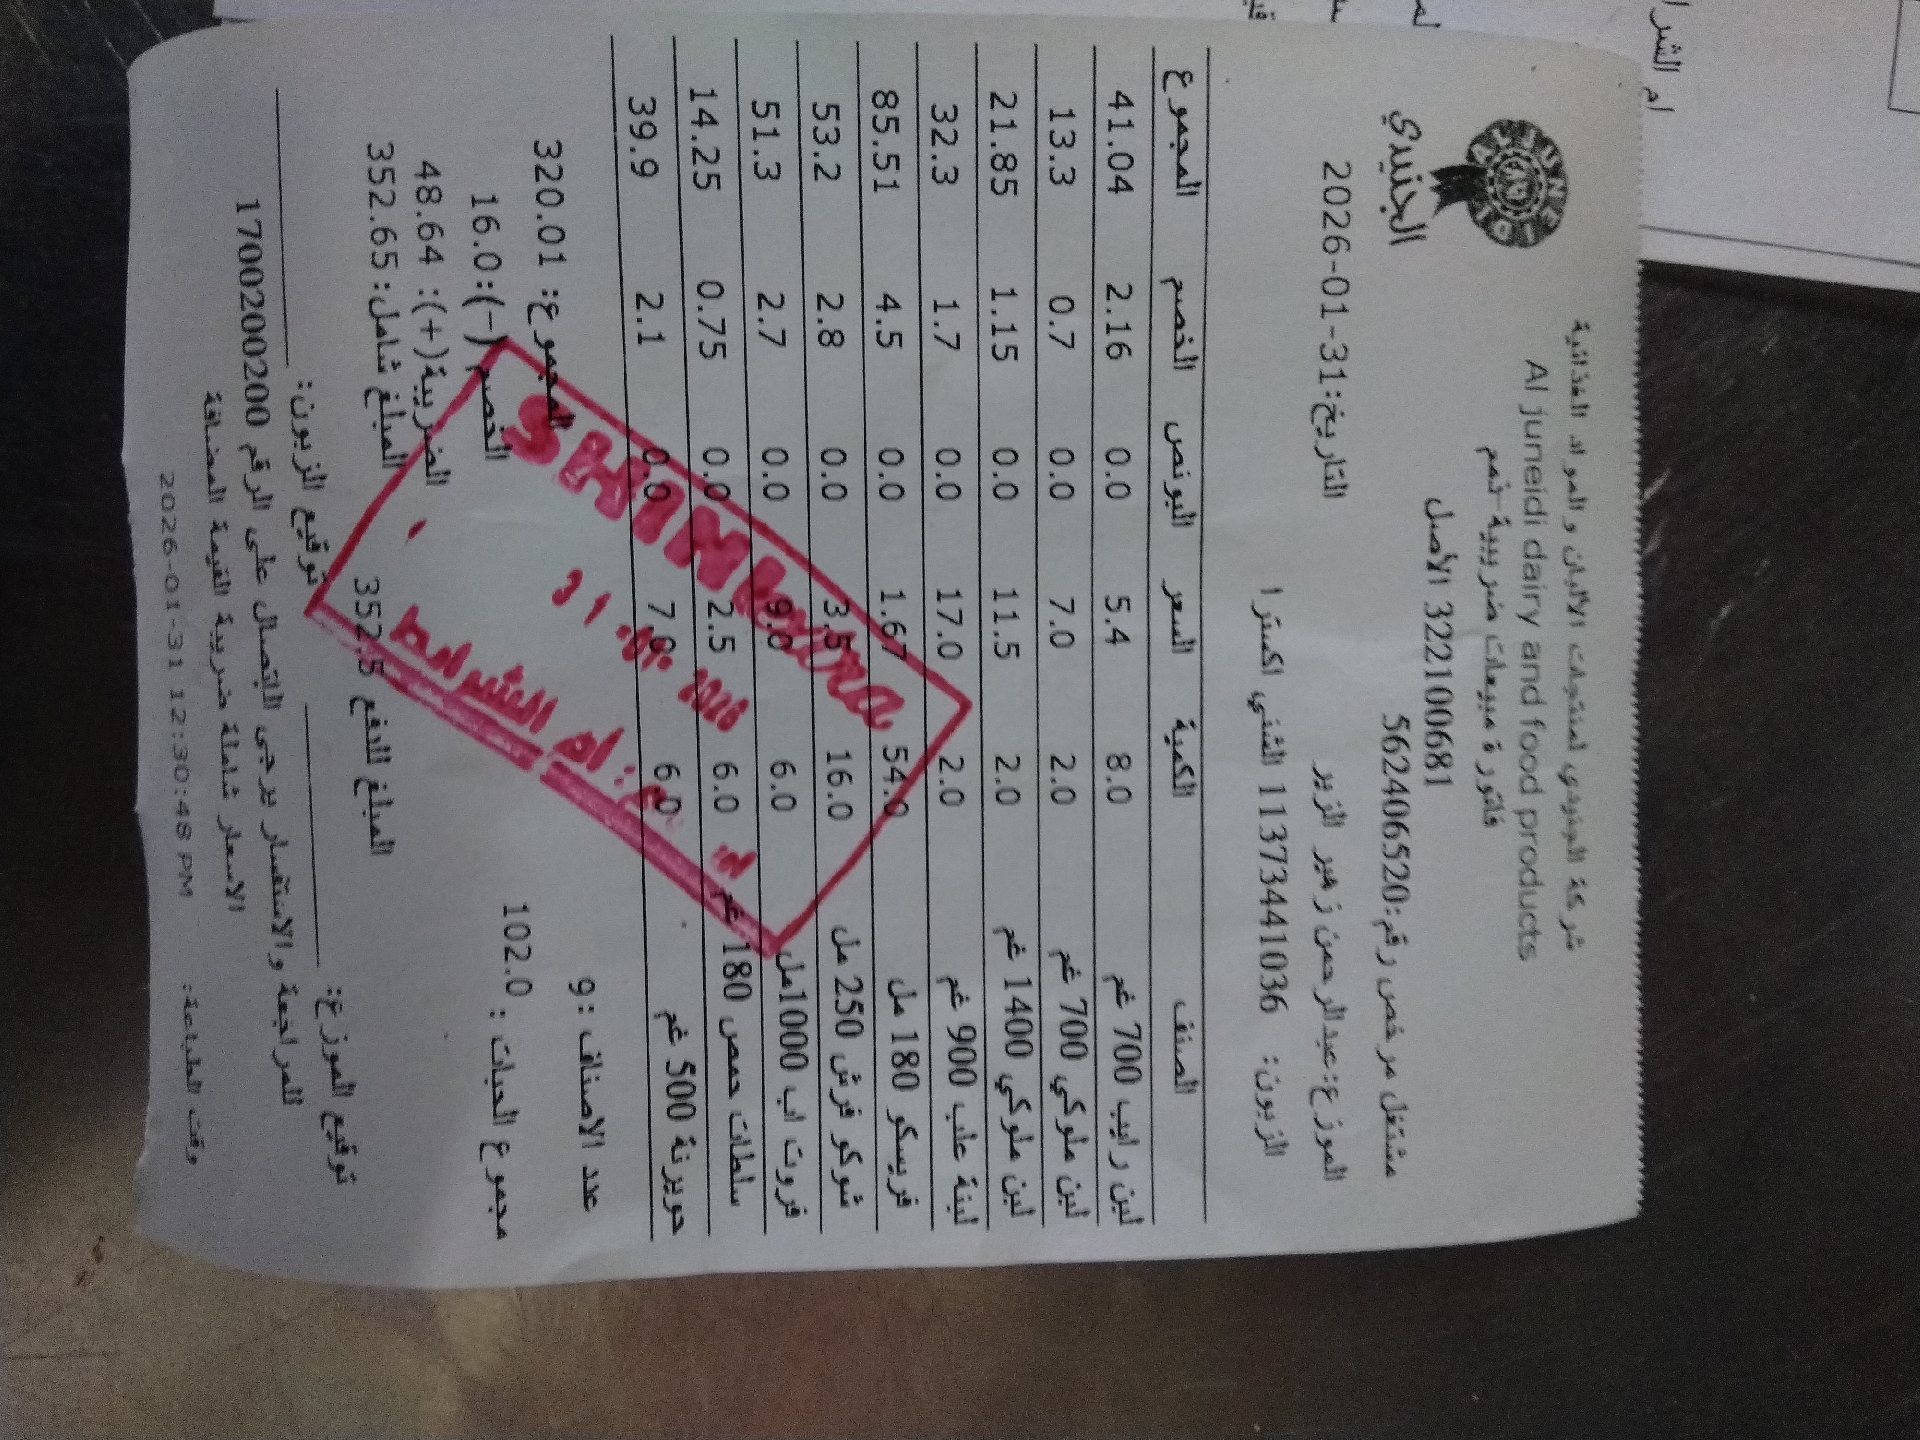 شركة الجنيدي لمنتجات الالبان والمواد الغذائية
Al juneidi dairy and food products
فاتورة مبيعات ضريبية-ذمم
322100681 الأصل
الجنيدي
مشتغل مرخص رقم:562406520
التاريخ:2026-01-31
الموزع:عبدالرحمن زهير الزير
الزبون: 11373441036 الشني اكسترا
الصنف الكمية السعر البونص الخصم المجموع
لبن رايب 700 غم 8.0 5.4 0.0 2.16 41.04
لبن ملوكي 700 غم 2.0 7.0 0.0 0.7 13.3
لبن ملوكي 1400 غم 2.0 11.5 0.0 1.15 21.85
لبنة علب 900 غم 2.0 17.0 0.0 1.7 32.3
فريسكو 180 مل 54.0 1.67 0.0 4.5 85.51
شوكو فرش 250 مل 16.0 3.5 0.0 2.8 53.2
فروت اب 1000مل 6.0 9.0 0.0 2.7 51.3
سلطات حمص 180 غم 6.0 2.5 0.0 0.75 14.25
حويرنة 500 غم 6.0 7.0 0.0 2.1 39.9
SHINI extra
31 2026
ام الشرايط
عدد الاصناف :9
المجموع: 320.01
مجموع الحبات : 102.0
الخصم (-):16.0
الضريبة(+): 48.64
المبلغ شامل: 352.65
المبلغ للدفع 352.5
توقيع الموزع:
توقيع الزبون:
للمراجعة والاستفسار يرجى التصال على الرقم 1700200200
الاسعار شاملة ضريبة القيمة المضافة
وقت الطباعة: 2026-01-31 12:30:48 PM
ام الشرا